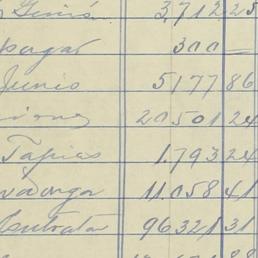 Giró 3,712 25
pagar 300 —
Junio 5177 86
20501 24
Tapias 1.793 24
vadonga 11.058 41
Contrata 96321 31